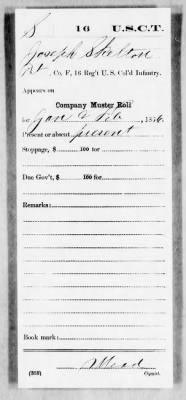 S 16 U.S.C.T.
Joseph Skelton
Pt, Co. F, 16 Reg't U. S. Col'd Infantry.
Appears on
Company Muster Roll
for Jan & Feb, 1866.
Present or absent present
Stoppage, $ 100 for
Due Gov't, $ 100 for
Remarks:
Book mark:
Mead
(358) Copyist.